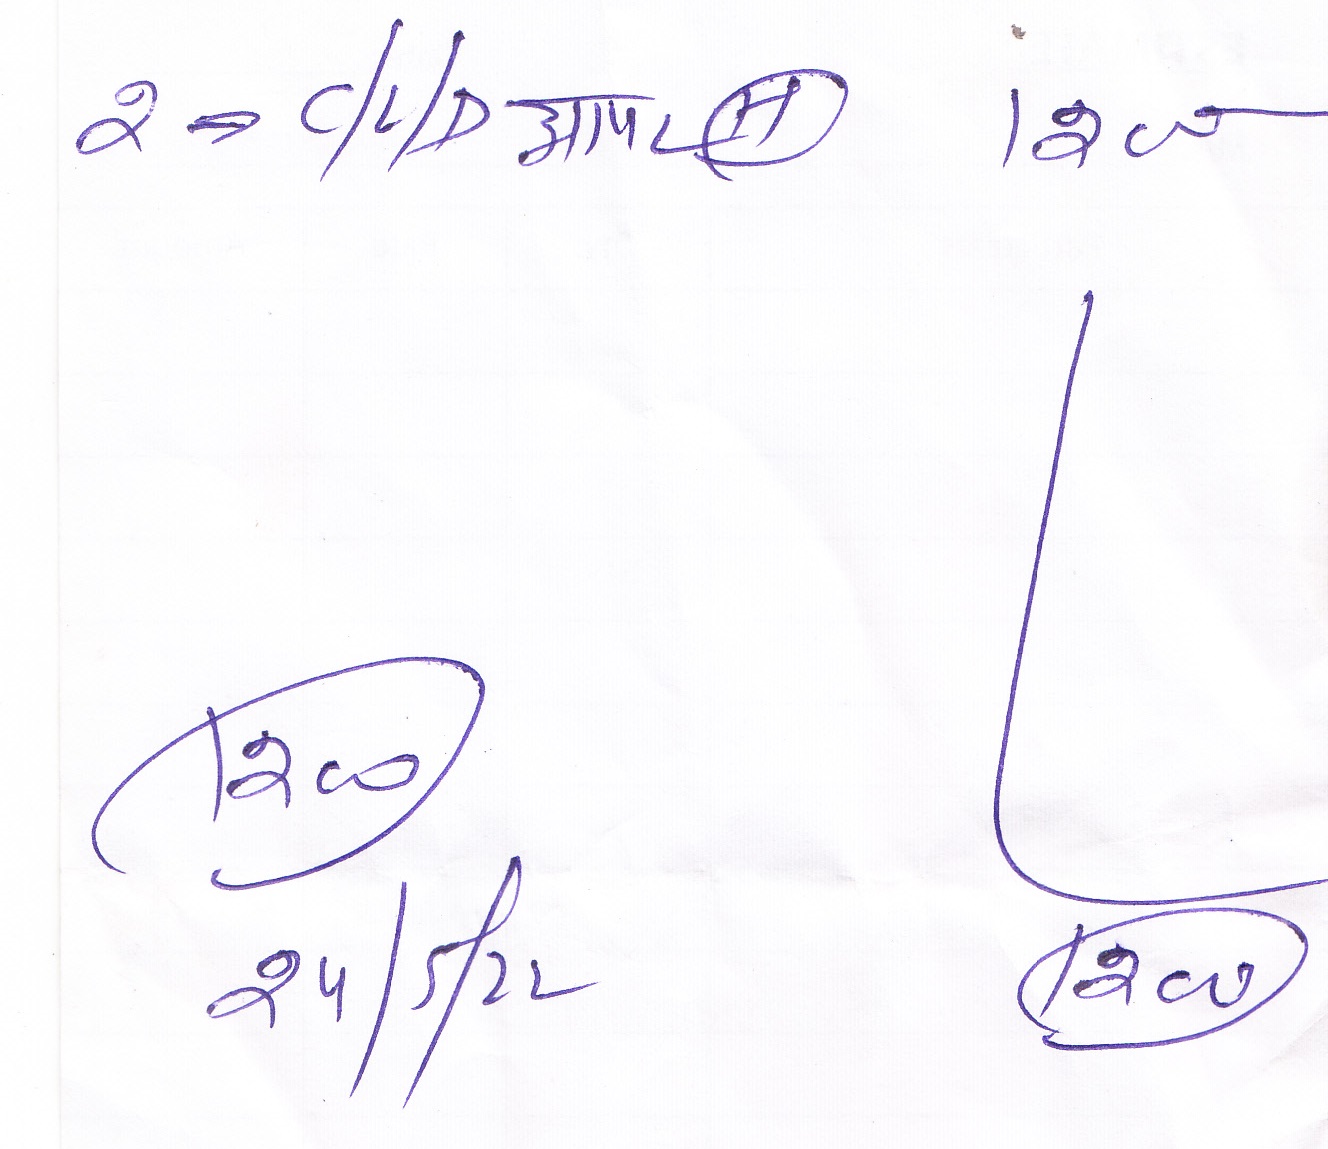 2 → C/L/D आयल (H) 1200
1200
24/5/22 1200